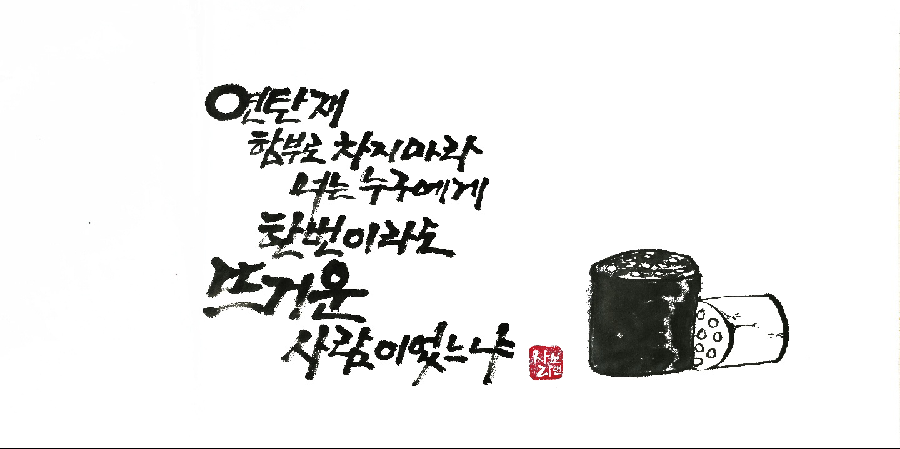 연탄재
함부로 차지마라
너는 누구에게
한번이라도
뜨거운
사람이었느냐